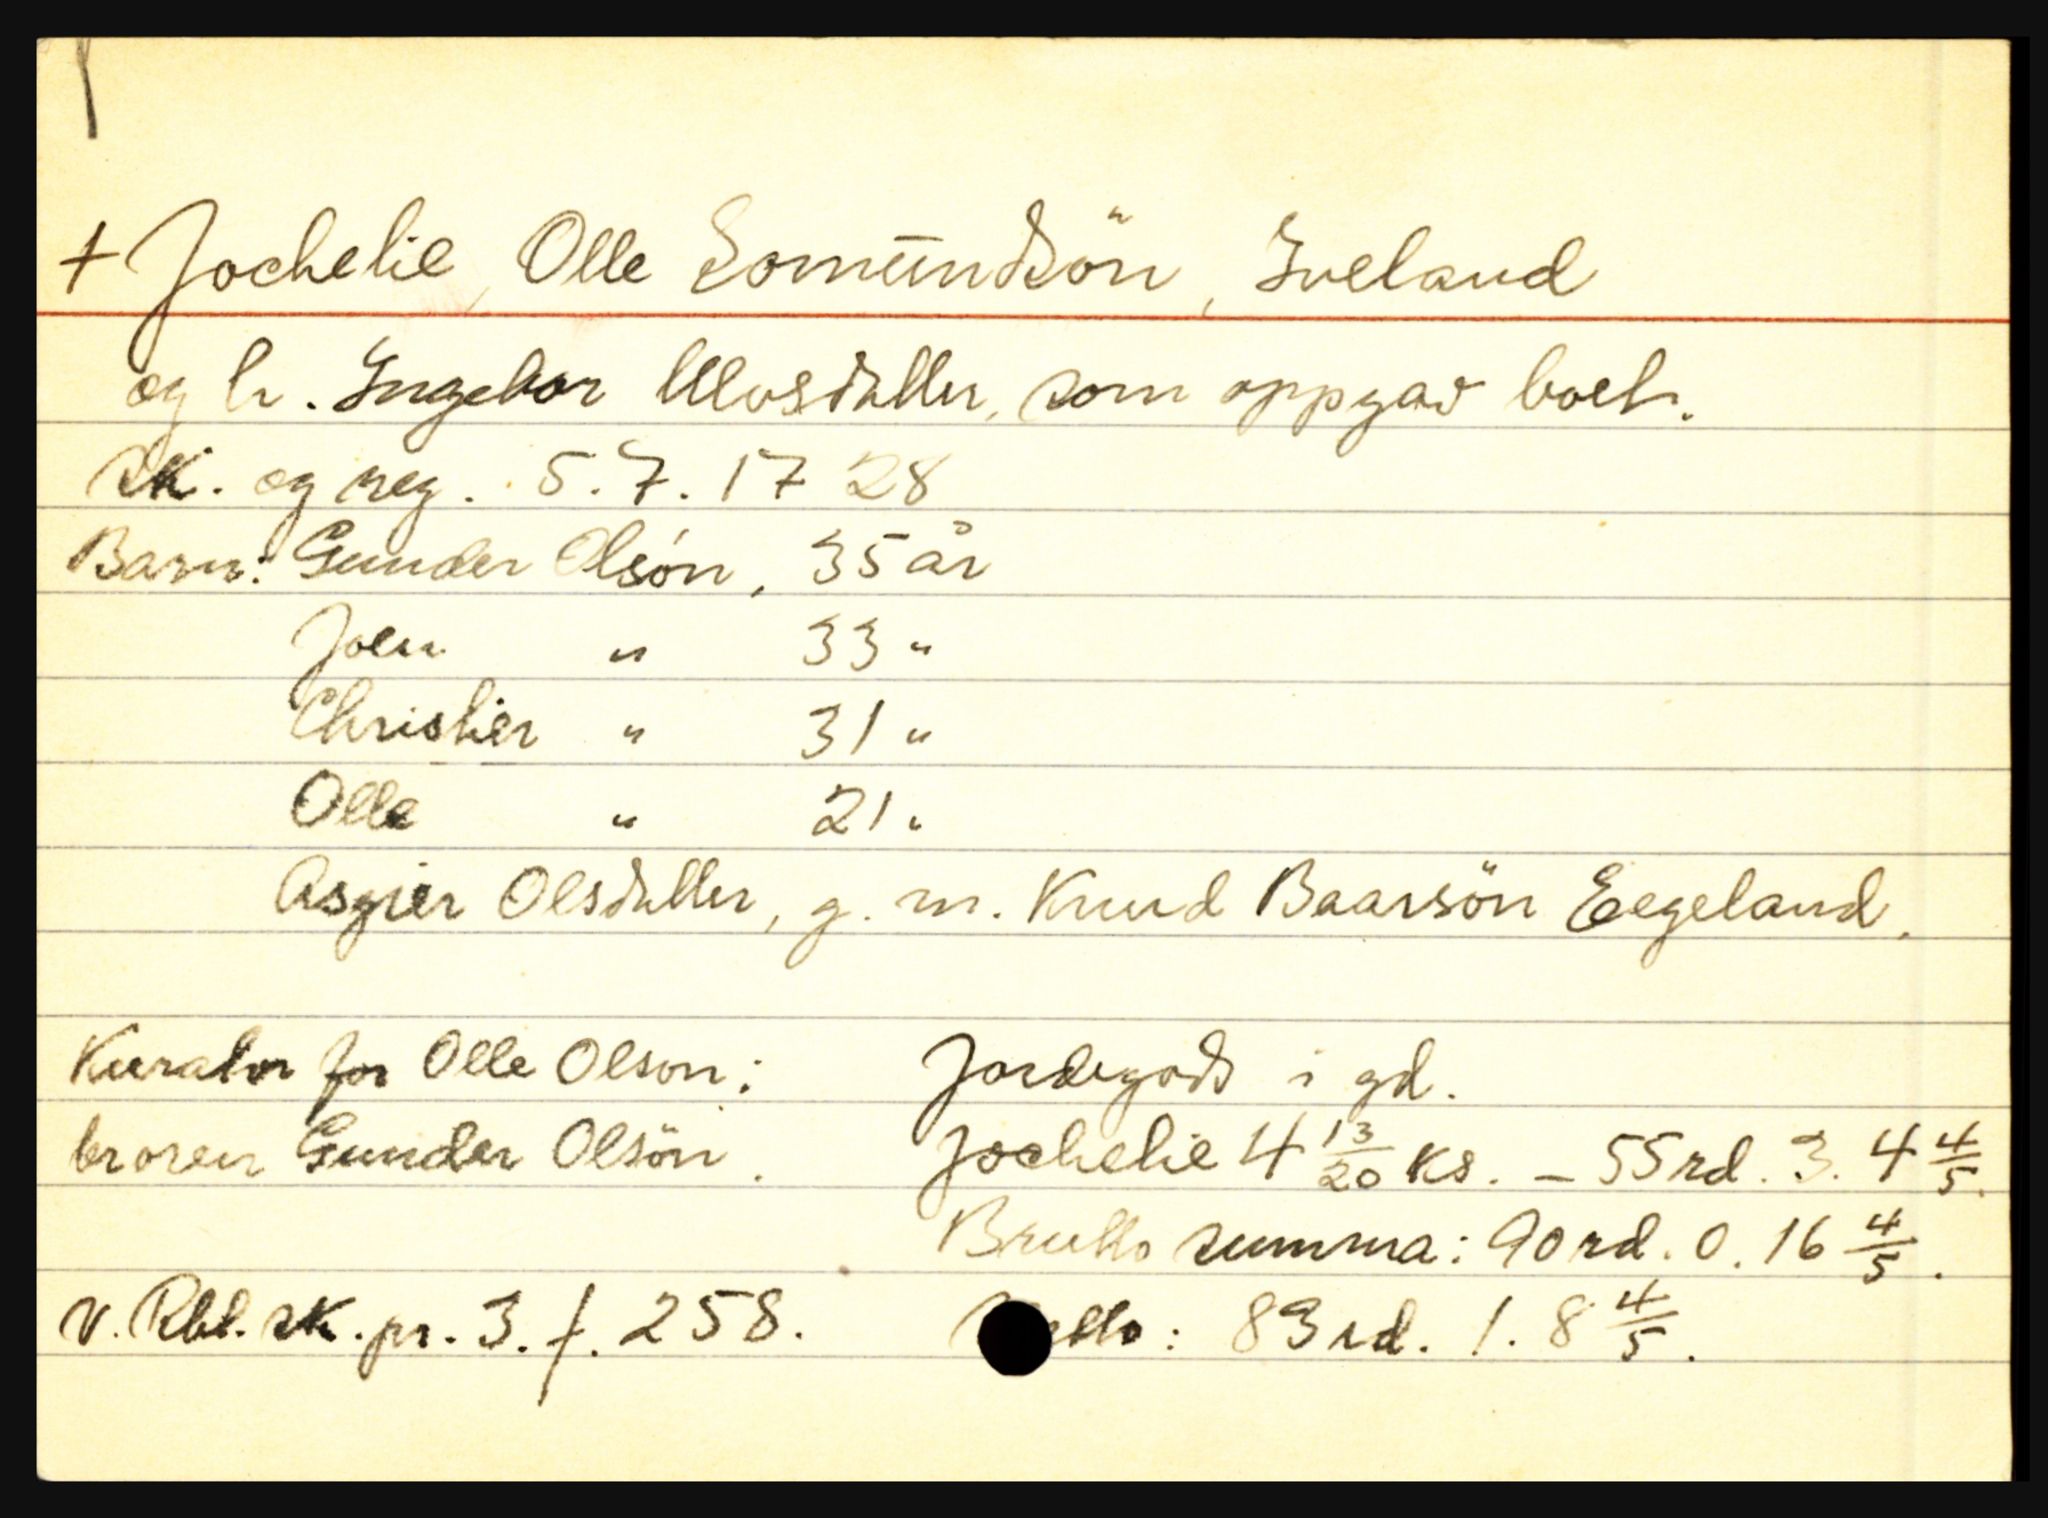 + Jochelie, Olle Somundsön, Iveland
og h. Ingebor Ulvsdatter, som oppgav boet.
sk. og reg. 5.7.1728
Barn: Gunder Olsón, 35 år
Joen " 33 "
Christier " 31 "
Olle " 21 "
Asgier Olsdatter, g. m. Knud Baarsön Eegeland.
Kurator for Olle Olson:
broren Gunder Olsön.
Jordegods i gd.
Jochelie 4 13/20 ks. – 55 rd. 3. 4 4/5.
Brutto summa: 90 rd. 0. 16 4/5.
Netto: 83 rd. 1. 8 4/5.
v. Rbl. sk. pr. 3. f. 258.